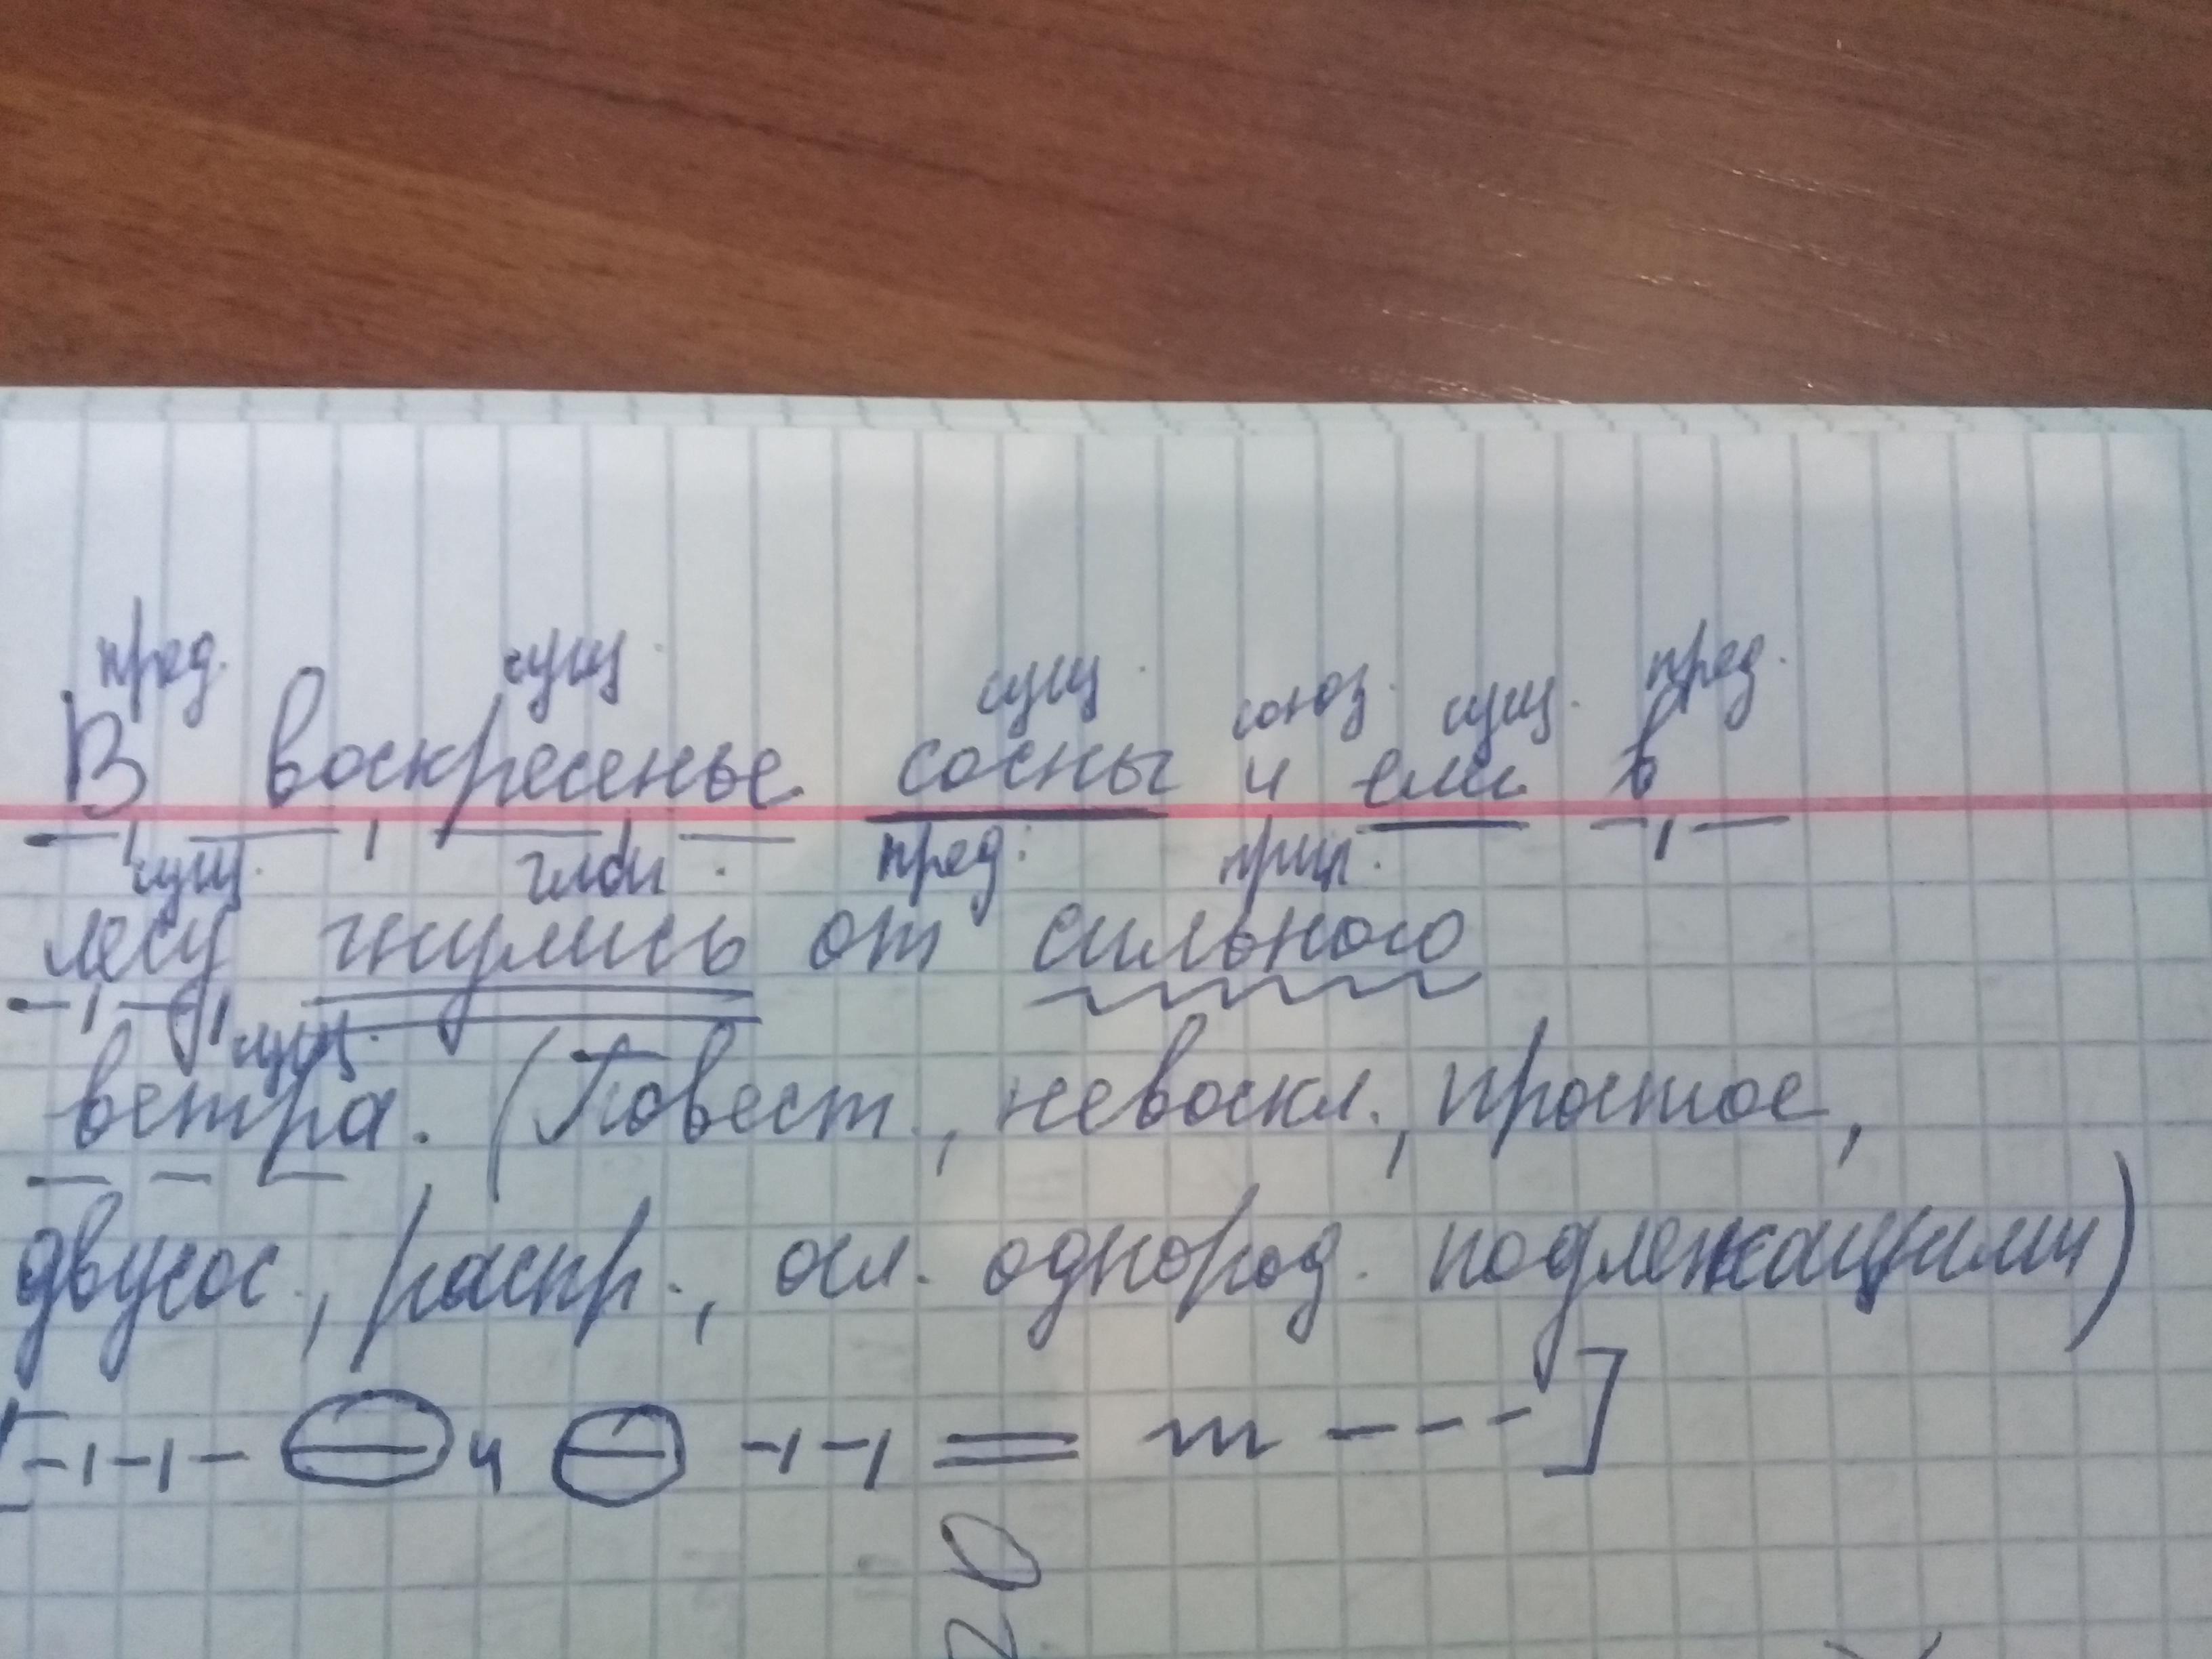 пред. сущ. сущ. союз. сущ. пред.
В воскресенье сосны и ели в
сущ. глаг. пред. прил.
лесу гнулись от сильного
сущ.
ветра. (Повест., невоскл., простое,
двусос., распр., осл. однород. подлежащими)
и
20